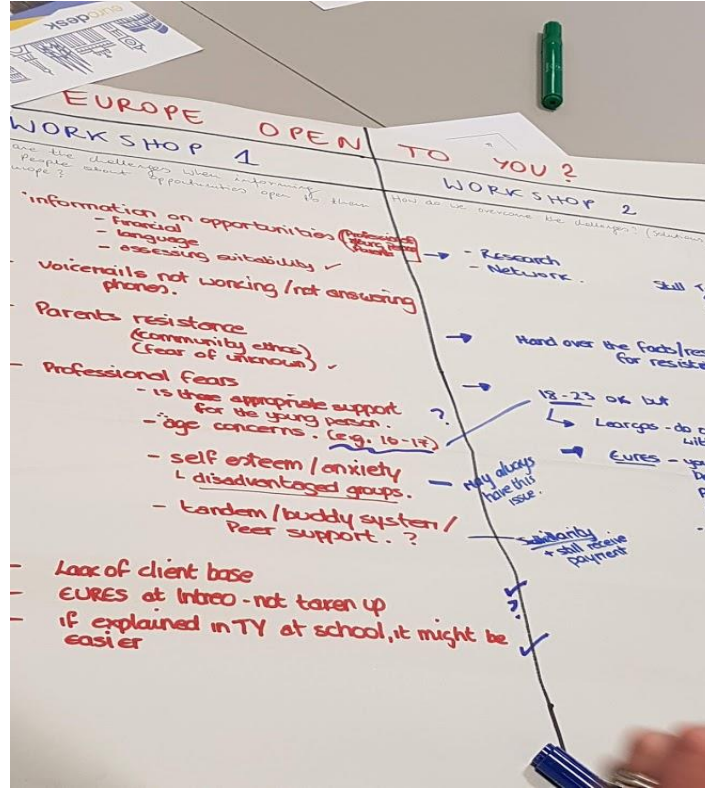 eurodesk
EUROPE OPEN TO YOU?
WORKSHOP 1
are the challenges when informing
People about opportunities open to them
WORKSHOP 2
How do we overcome the challenges? (Solutions
information on opportunities
- Financial
- language
- assessing suitability ✓
- Voicemails not working / not answering
phones.
- Parents resistance
(community ethos)
(fear of unknown) ✓
- Professional fears
- is there appropriate support
for the young person.
- age concerns. (e.g. 16-17)
- self esteem / anxiety
disadvantaged groups.
- tandem / buddy system /
Peer support. ?
- Lack of client base
- EURES at Intreo - not taken up
- if explained in TY at school, it might be
easier
→ - Research
- Network.
Still
→ Hand over the facts/
for
→ 18-23 ok but
?
Eures -
- May always
have this
issue.
+ still receive
payment
✓
?
✓